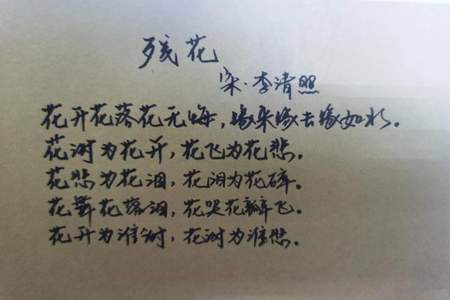 残花
宋·李清照
花开花落花无悔，缘来缘去缘如水。
花谢为花开，花飞为花悲。
花悲为花泪，花泪为花碎。
花舞花落泪，花哭花瓣飞。
花开为谁谢，花谢为谁悲。